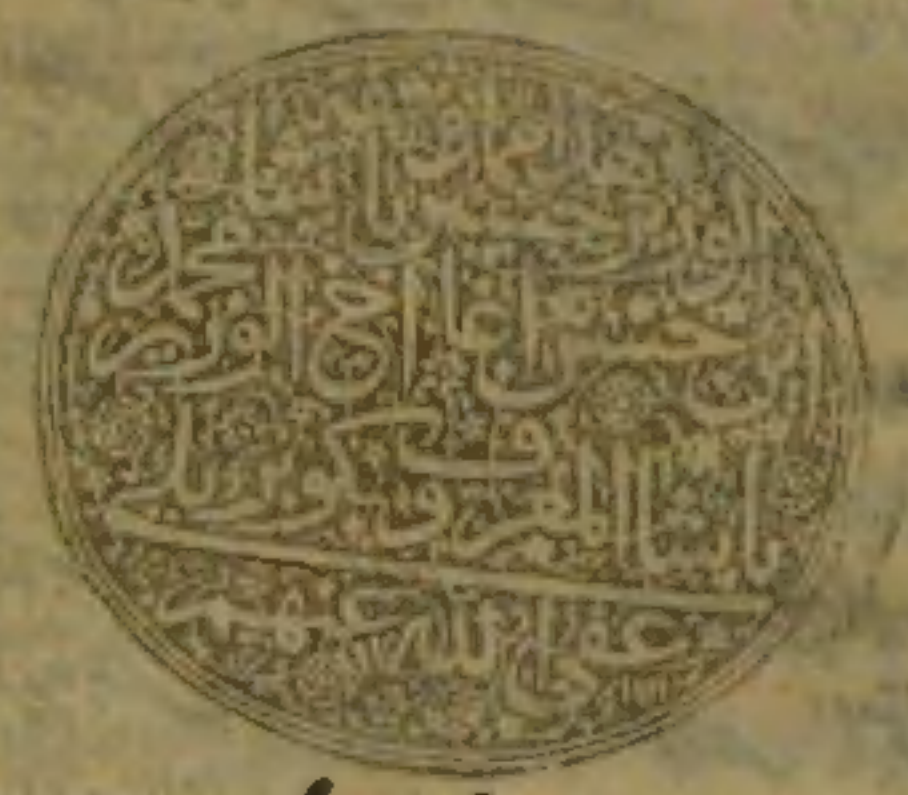 هذا مما وقف
الوزير حسين پاشا
ابن حسن اغا اخى الوزير محمد
پاشا المعروف بكوپريلى
عفى الله عنهم